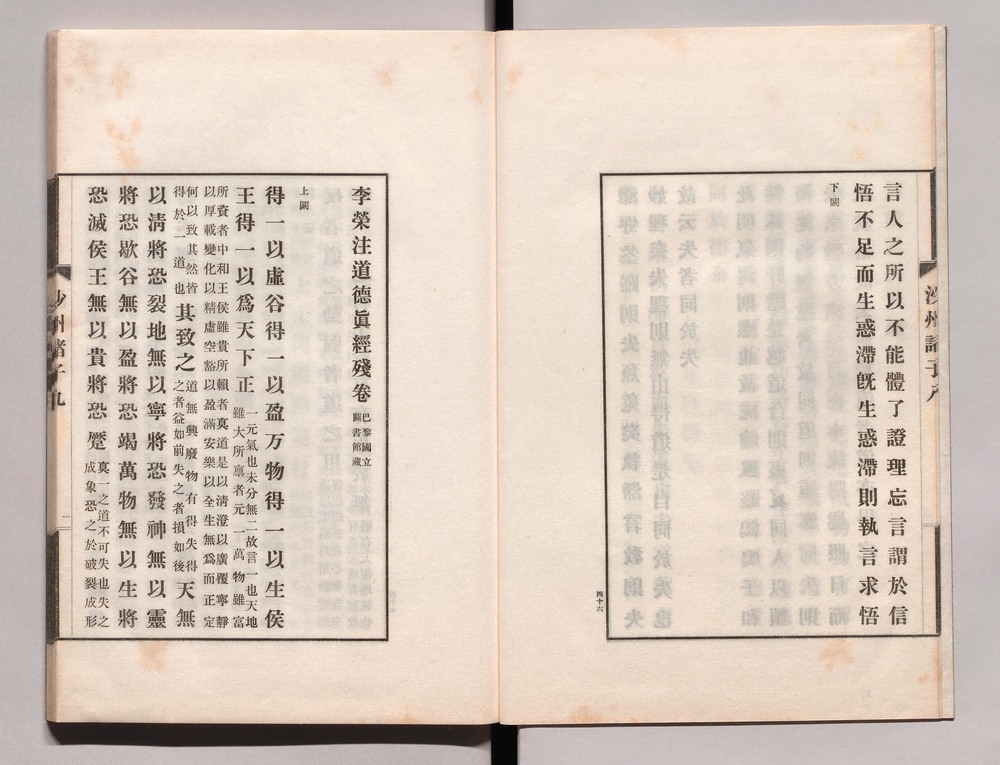 言人之所以不能體了證理忘言謂於信
悟不足而生惑滯旣生惑滯則執言求悟
下闕
四十六
李榮注道德眞經殘卷
巴黎國立
圖書館藏
上闕
得一以虛谷得一以盈万物得一以生侯
王得一以爲天下正
一元氣也未分無二故言一也天地
雖大所禀者元一萬物雖富
所資者中和王侯雖貴所賴者眞道是以清澄以廣覆寧靜
以厚載變化以精虛空豁以盈滿安樂以全生無爲而正定
何以致其然皆
得於一道也
其致之
道無興廢物有得失得
之者益如前失之者損如後
天無
以清將恐裂地無以寧將恐發神無以靈
將恐歇谷無以盈將恐竭萬物無以生將
恐滅侯王無以貴將恐蹷
眞一之道不可失也失之
成象恐之於破裂成形